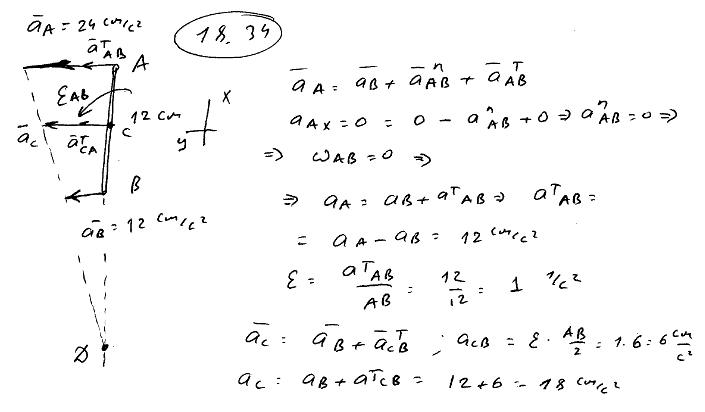 18.34
āA = 24 см/с²
āᵀAB
A
εAB
12 см
x
y
āC
āᵀCA
C
B
āB = 12 см/с²
D
āA = āB + āⁿAB + āᵀAB
aAx = 0 = 0 - aⁿAB + 0 ⇒ aⁿAB = 0 ⇒
⇒ ωAB = 0 ⇒
⇒ aA = aB + aᵀAB ⇒ aᵀAB =
= aA - aB = 12 см/с²
ε = aᵀAB / AB = 12/12 = 1 1/с²
āC = āB + āᵀCB ; aCB = ε · AB/2 = 1·6 = 6 см/с²
aC = aB + aᵀCB = 12 + 6 = 18 см/с²